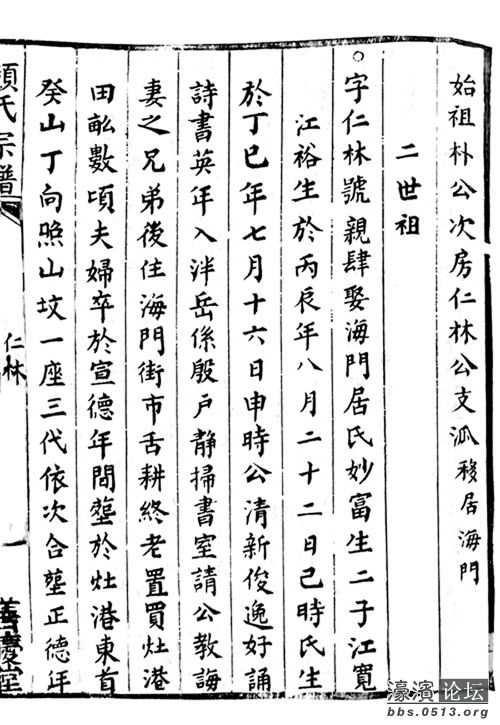 始祖朴公次房仁林公支派移居海門
二世祖
字仁林號親肆娶海門居氏妙富生二子江寬
江裕生於丙辰年八月二十二日己時氏生
於丁巳年七月十六日申時公清新俊逸好誦
詩書英年入泮岳係殷戶靜掃書室請公教誨
妻之兄弟後住海門街市舌耕終老置買灶港
田畝數頃夫婦卒於宣德年間塟於灶港東首
癸山丁向照山坟一座三代依次合塟正德年
氏宗譜
仁林
善慶堂
濠濱论坛
bbs.0513.org